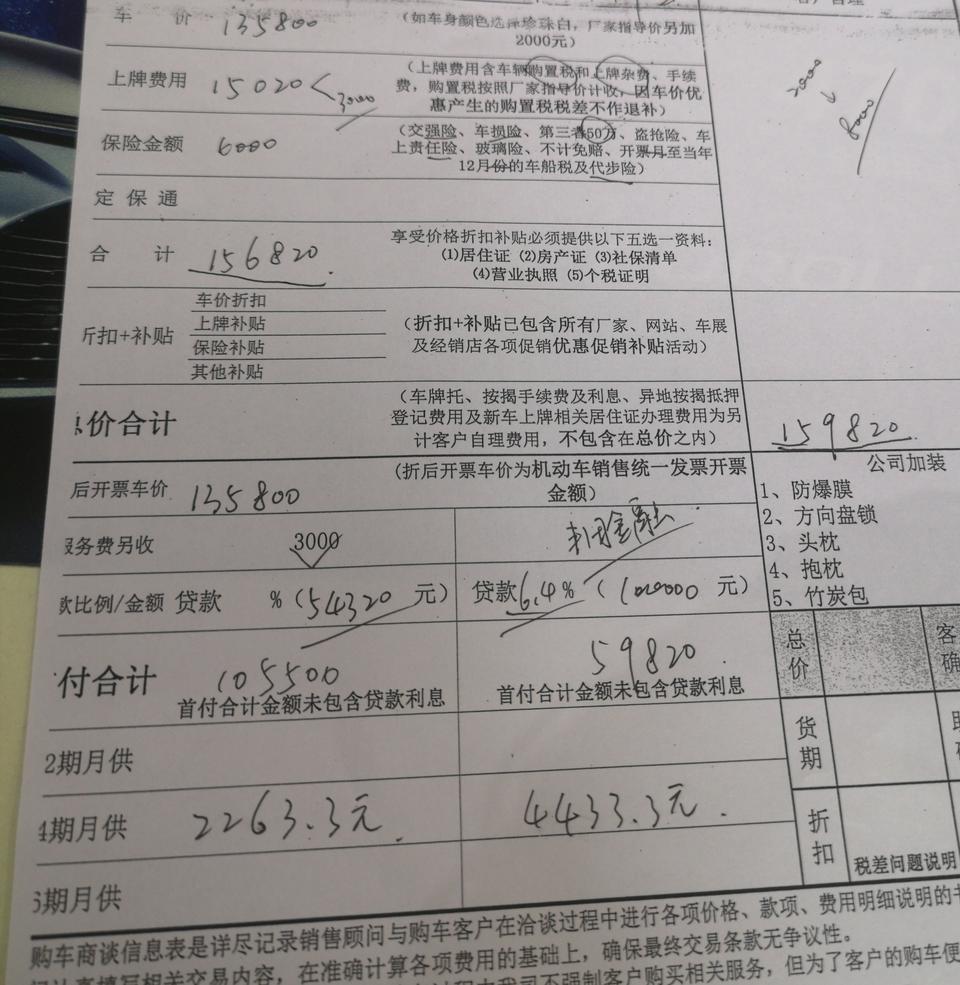 车 价 135800 (如车身颜色选择珍珠白，厂家指导价另加
2000元)
上牌费用 15020 < 3000 (上牌费用含车辆购置税和上牌杂费、手续
费，购置税按照厂家指导价计收，因车价优
惠产生的购置税税差不作退补)
2000
↓
8000
保险金额 6000 (交强险、车损险、第三者50万、盗抢险、车
上责任险、玻璃险、不计免赔、开票月至当年
12月份的车船税及代步险)
定 保 通
合 计 156820. 享受价格折扣补贴必须提供以下五选一资料：
(1)居住证 (2)房产证 (3)社保清单
(4)营业执照 (5)个税证明
折扣+补贴
车价折扣
上牌补贴
保险补贴
其他补贴
(折扣+补贴已包含所有厂家、网站、车展
及经销店各项促销优惠促销补贴活动)
总价合计
(车牌托、按揭手续费及利息、异地按揭抵押
登记费用及新车上牌相关居住证办理费用为另
计客户自理费用，不包含在总价之内)
159820.
后开票车价 135800 (折后开票车价为机动车销售统一发票开票
金额)
服务费另收 3000
金融
款比例/金额 贷款 %(54320 元) 贷款6.4% (100000 元)
付合计 105500
首付合计金额未包含贷款利息
59820
首付合计金额未包含贷款利息
2期月供
4期月供 2263.3元. 4433.3元.
6期月供
公司加装
1、防爆膜
2、方向盘锁
3、头枕
4、抱枕
5、竹炭包
总价
客
确
货期
折扣
税差问题说明
购车商谈信息表是详尽记录销售顾问与购车客户在洽谈过程中进行各项价格、款项、费用明细说明的书
填写相关交易内容，在准确计算各项费用的基础上，确保最终交易条款无争议性。
不强制客户购买相关服务，但为了客户的购车便